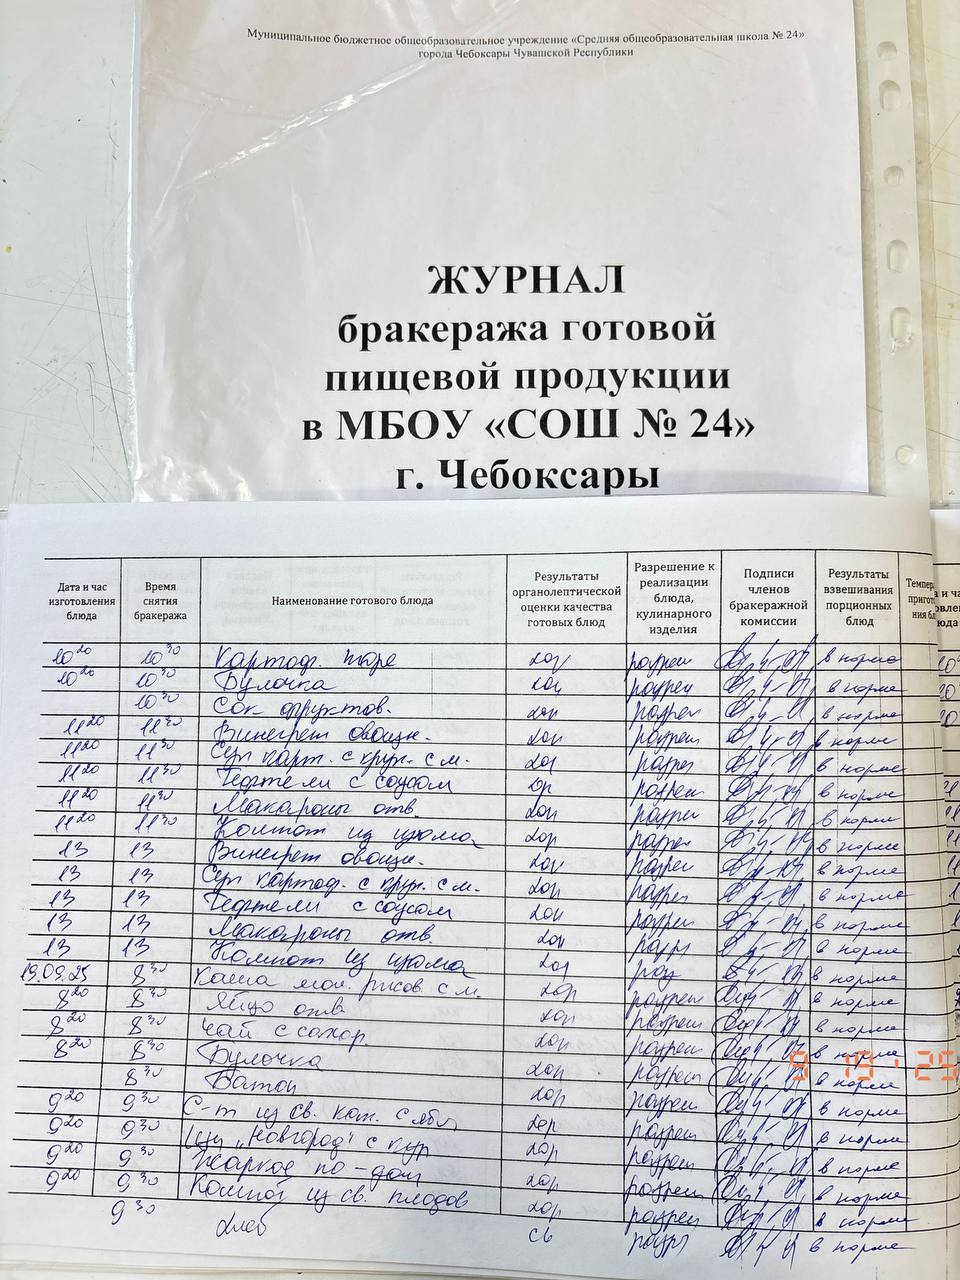 Муниципальное бюджетное общеобразовательное учреждение «Средняя общеобразовательная школа № 24»
города Чебоксары Чувашской Республики
ЖУРНАЛ
бракеража готовой
пищевой продукции
в МБОУ «СОШ № 24»
г. Чебоксары
Дата и час изготовления блюда Время снятия бракеража Наименование готового блюда Результаты органолептической оценки качества готовых блюд Разрешение к реализации блюда, кулинарного изделия Подписи членов бракеражной комиссии Результаты взвешивания порционных блюд
10 20 10 30 Картоф. пюре хор разреш в норме
10 20 10 30 Булочка хор разреш в норме
10 30 Сок фруктов. хор разреш в норме
11 20 11 30 Винегрет овощн. хор разреш в норме
11 20 11 30 Суп карт. с круп. с м. хор разреш в норме
11 20 11 30 Тефтели с соусом хор разреш в норме
11 20 11 30 Макароны отв. хор разреш в норме
11 20 11 30 Компот из изюма хор разреш в норме
13 13 Винегрет овощн. хор разреш в норме
13 13 Суп картоф. с круп. с м. хор разреш в норме
13 13 Тефтели с соусом хор разреш в норме
13 13 Макароны отв. хор разр в норме
13 13 Компот из изюма хор раз в норме
19.09.25 8 30 Каша мол. рисов. с м. хор разреш в норме
8 20 8 30 Яйцо отв хор разреш в норме
8 20 8 30 Чай с сахар. хор разреш в норме
8 20 8 30 Булочка хор разреш в норме
8 30 Батон хор разреш в норме
9 20 9 30 С-т из св. кап. с ябл хор разреш в норме
9 20 9 30 Щи "Новгород" с кур хор разреш в норме
9 20 9 30 Жаркое по-дом хор разреш в норме
9 20 9 30 Компот из св. плодов хор разреш в норме
9 30 Хлеб в норме
9 19 '25